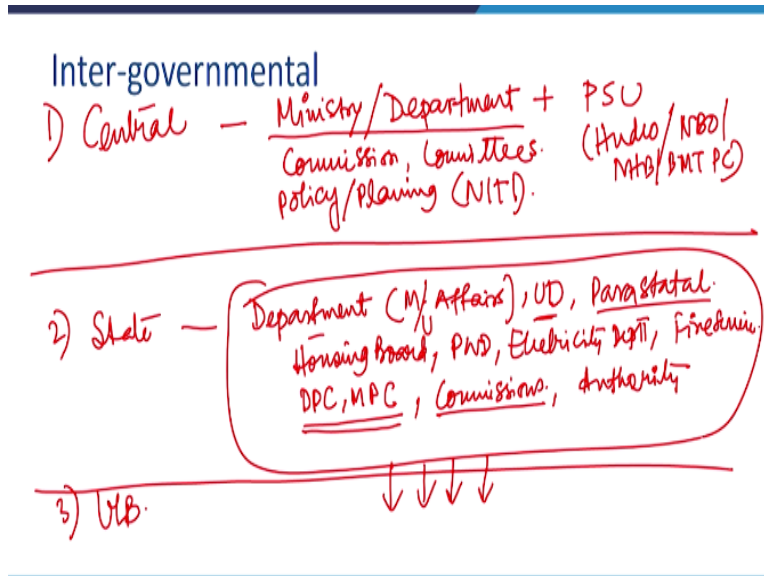 Inter-governmental
1) Central – Ministry/Department + PSU
Commission, Committees. (Hudco/NBO/
Policy/Planing (NITI). MHB/BMTPC)
2) State – Department (M/Affairs), UD, Parastatal.
Housing Board, PWD, Electricity Deptt, Fire Servic.
DPC, MPC, Commissions, Authority
3) ULB.